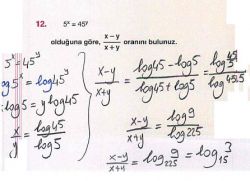 12. 5ˣ = 45ʸ
olduğuna göre, (x−y)/(x+y) oranını bulunuz.
5ˣ = 45ʸ
log5ˣ = log45ʸ
log5 = y log45
x/y = log45/log5
(x−y)/(x+y) = (log45 − log5)/(log45 + log5) = log(45/5)/log45.5
(x−y)/(x+y) = log9/log225
(x−y)/(x+y) = log₂₂₅9 = log₁₅3